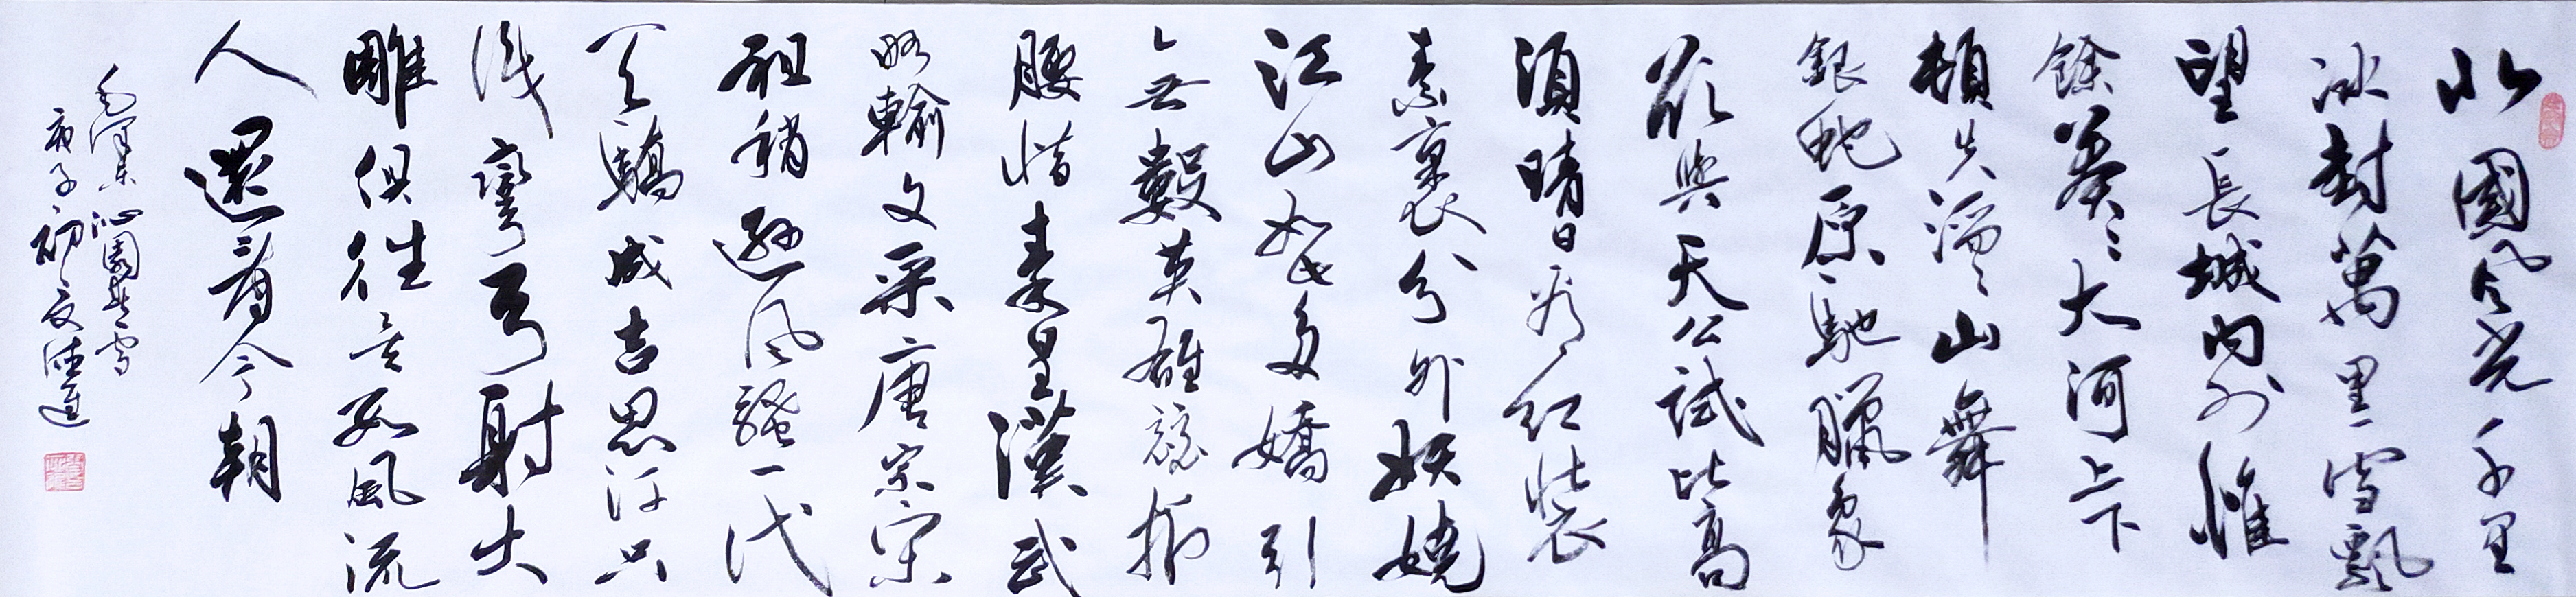 北國風光千里
冰封萬里雪飄
望長城內外惟
餘莽〻大河上下
頓失滔〻山舞
銀蛇原馳臘象
欲與天公試比高
須晴日看紅裝
素裹分外妖嬈
江山如此多嬌引
無數英雄競折
腰惜秦皇漢武
略輸文采唐宗宋
祖稍遜風騷一代
天驕成吉思汗只
識彎弓射大
雕俱往矣數風流
人還看今朝
毛澤東沁園春雪
庚子初夏